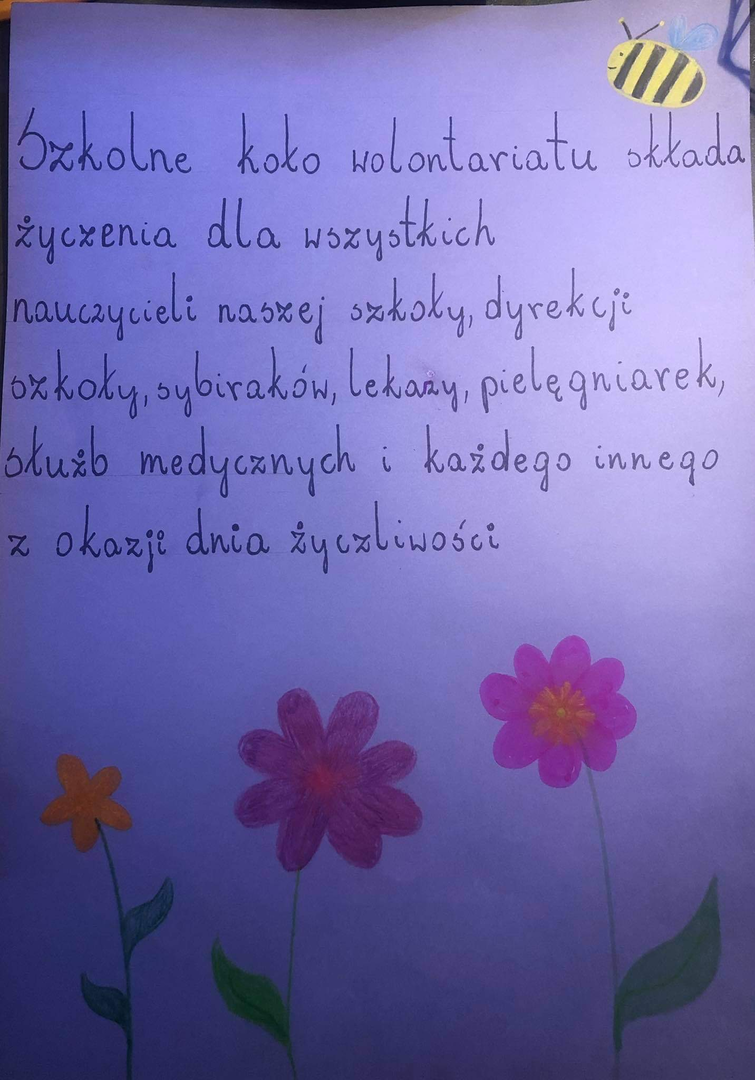 Szkolne koło wolontariatu składa
życzenia dla wszystkich
nauczycieli naszej szkoły, dyrekcji
szkoły, sybiraków, lekarzy, pielęgniarek,
służb medycznych i każdego innego
z okazji dnia życzliwości